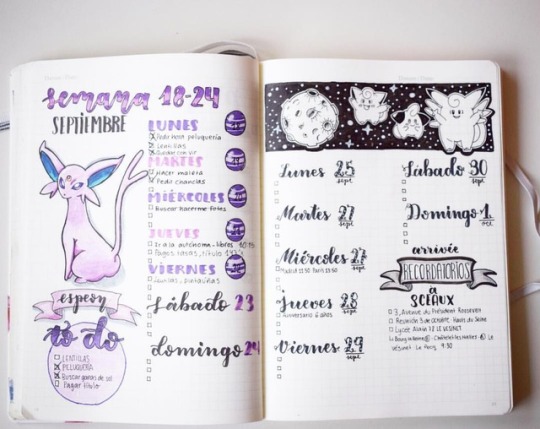 semana 18-24
SEPTIEMBRE
LUNES
Pedir hora peluquería
Lentillas
Quedar con Vir
MARTES
Hacer maleta
Pedir chanclas
MIÉRCOLES
Buscar hacerme fotos
JUEVES
Ir a la autónoma - libros
Pagar tasas, título
VIERNES
Sábado 23
domingo 24
espeon
to do
LENTILLAS
PELUQUERA
Buscar gafas de sol
Pagar título
Lunes 25
sept
Martes 27
sept
Miércoles 27
sept
Madrid 11:50 París 13:50
Jueves 28
sept
Aniversario 6 años
Viernes 29
sept
Sábado 30
sept
Domingo 1
oct
arrivée
RECORDATORIOS
à
SCEAUX
3, Avenue du Président Roosevelt
Lycée Alain 78 LE VESINET